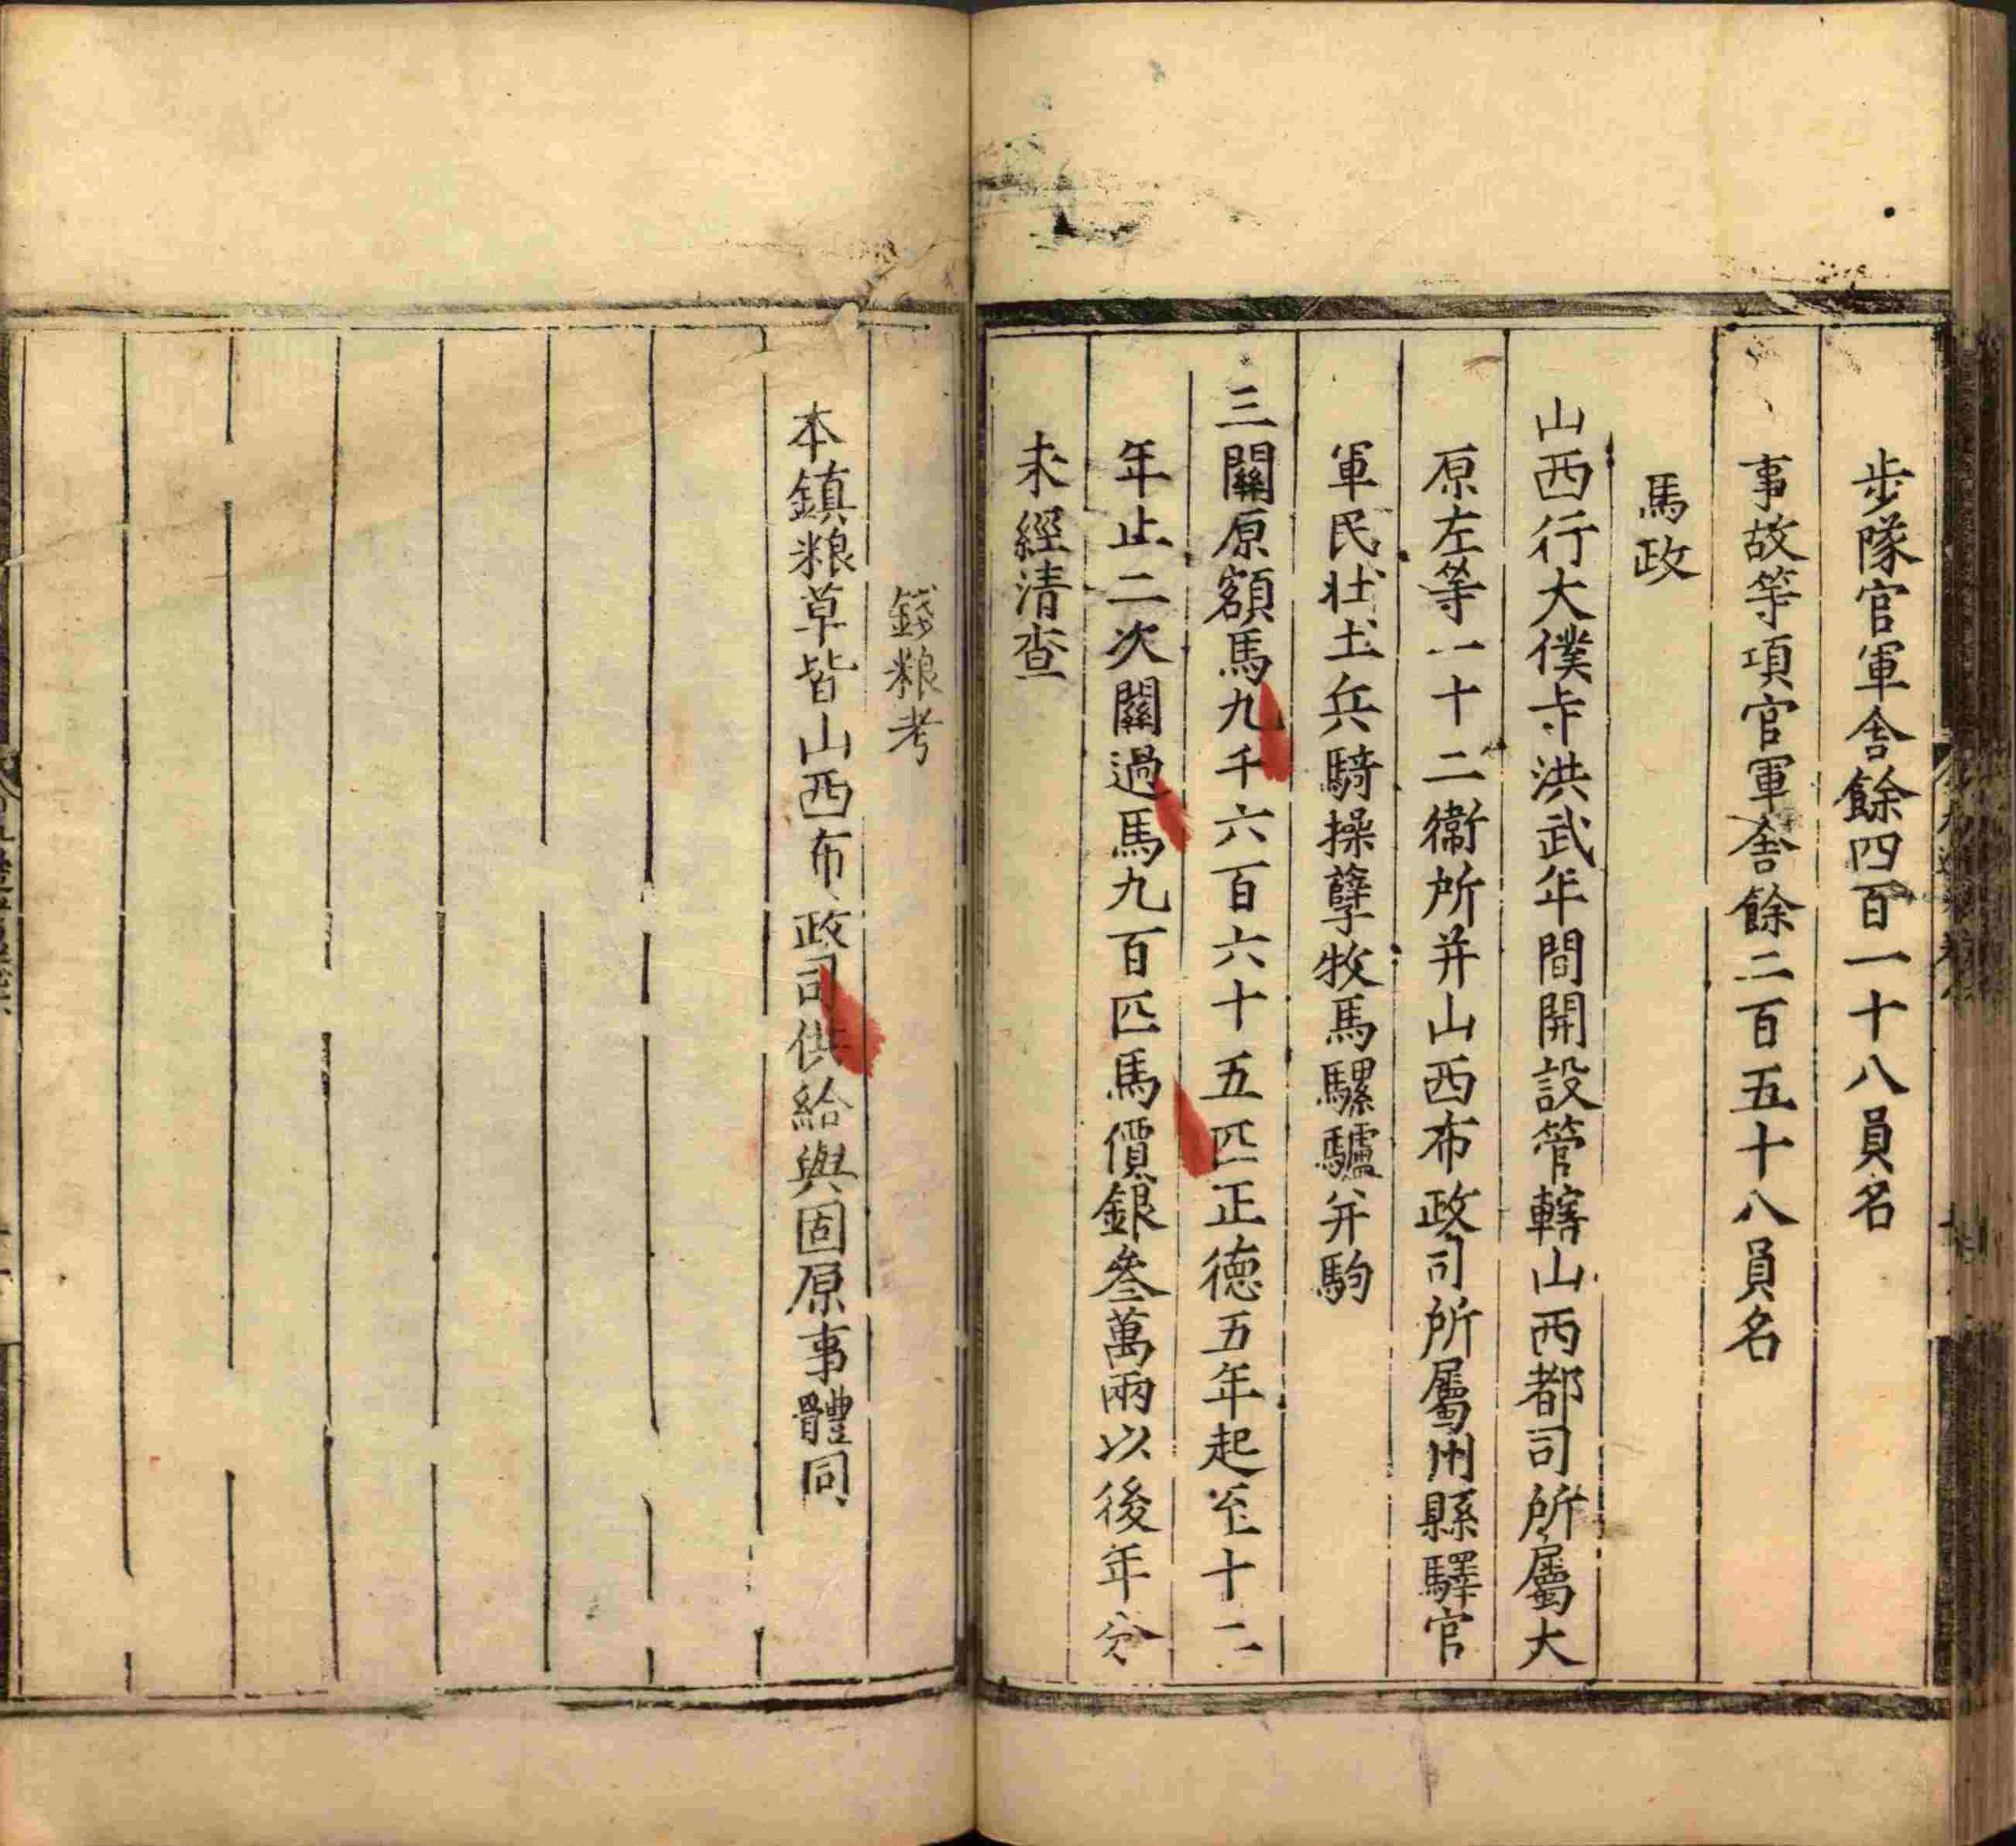 步隊官軍舎餘四百一十八員名
事故等項官軍舎餘二百五十八員名
馬政
山西行大僕寺洪武年間開設管轄山西都司所屬大
原左等一十二衛所并山西布政司所屬州縣驛官
軍民壮土兵騎操孳牧馬騾驢并駒
三關原額馬九千六百六十五匹正德五年起至十二
年止二次關過馬九百匹馬價銀叄萬兩以後年分
未經清查
錢粮考
本鎮粮草皆山西布政司供給與固原事體同